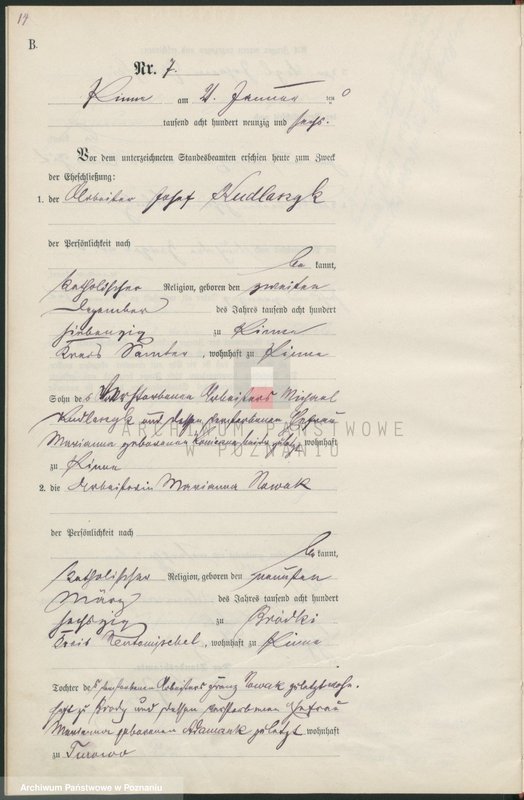 14
B.
Nr. 7.
Pinne am 21. Januar ten
tausend acht hundert neunzig und sechs.
Vor dem unterzeichneten Standesbeamten erschien heute zum Zweck
der Eheschließung:
1. der Arbeiter Josef Kudlaszyk
der Persönlichkeit nach
be kannt,
katholischer Religion, geboren den zweiten
Dezember des Jahres tausend acht hundert
siebenzig zu Pinne
Kreis Samter, wohnhaft zu Pinne
Sohn des verstorbenen Arbeiters Michael
Kudlaszyk und dessen verstorbenen Ehefrau
Marianna geborenen beide zuletzt wohnhaft
zu Pinne
2. die Arbeiterin Marianna Nowak
der Persönlichkeit nach
be kannt,
katholischer Religion, geboren den neunten
März des Jahres tausend acht hundert
sechszig zu Bródki
Kreis Neutomischel, wohnhaft zu Pinne
Tochter des verstorbenen Arbeiters Franz Nowak zuletzt wohn-
haft zu Brody und dessen verstorbenen Ehefrau
Marianna geborenen Adamczak zuletzt wohnhaft
zu Turowo
ARCHIWUM PAŃSTWOWE
W POZNANIU
Archiwum Państwowe w Poznaniu